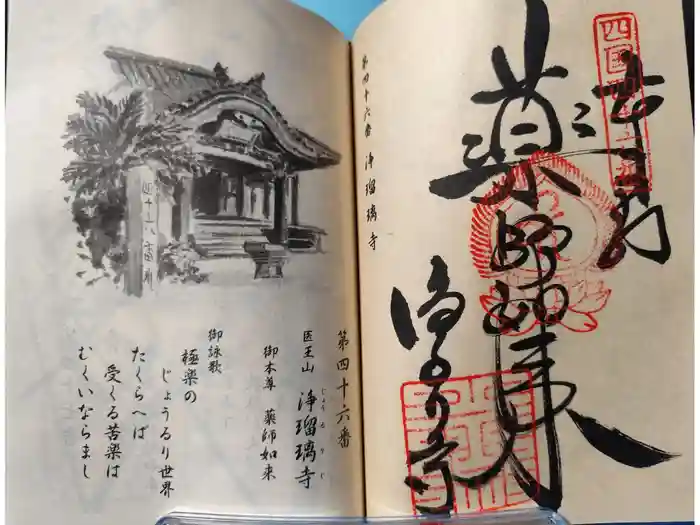 四国第四十六番
奉納
薬師如来
浄るり寺
第四十六番 浄瑠璃寺
四十六番
第四十六番
医王山 浄瑠璃寺
じょうるりじ
御本尊 薬師如来
御詠歌
極楽の
じょうるり世界
たくらへば
受くる苦楽は
むくいならまし